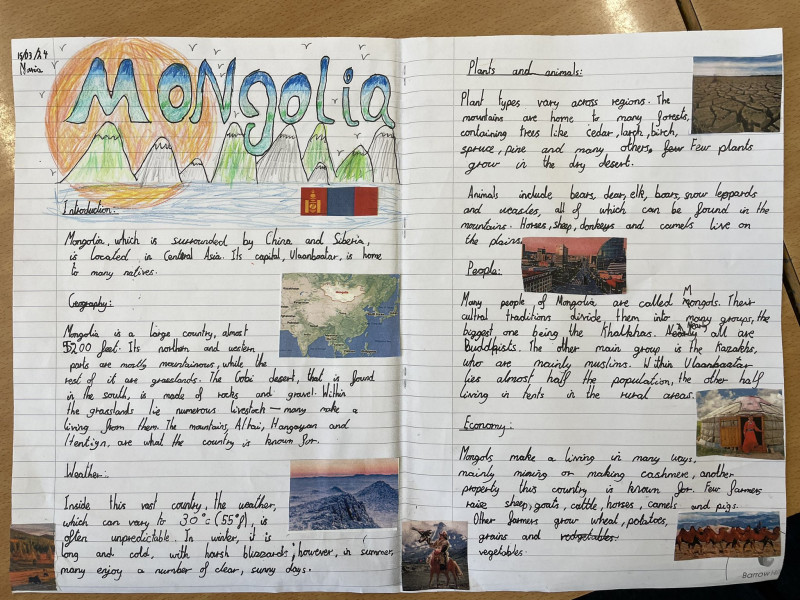 15/03/24
Maria
MONGOLIA
Introduction:
Mongolia, which is surrounded by China and Siberia,
is located in Central Asia. Its capital, Ulaanbaatar, is home
to many natives.
Geography:
Mongolia is a large country, almost
5200 feet. Its northern and western
parts are mostly mountainous, while the
rest of it are grasslands. The Gobi desert, that is found
in the south, is made of rocks and gravel. Within
the grasslands lie numerous livestock — many make a
living from them. The mountains, Altai, Hangayan and
Hentign, are what the country is known for.
Weather:
Inside this vast country, the weather,
which can vary to 30°c (55°f), is
often unpredictable. In winter, it is
long and cold, with harsh blizzards; however, in summer,
many enjoy a number of clear, sunny days.
Plants and animals:
Plant types vary across regions. The
mountains are home to many forests,
containing trees like cedar, larch, birch,
spruce, pine and many others. few Few plants
grow in the dry desert.
Animals include bears, dear, elk, boars, snow leppards
and weasles, all of which can be found in the
mountains. Horses, sheep, donkeys and camels live on
the plains.
People:
Many people of Mongolia are called Mongols. Their
cultral traditions divide them into many groups, the
biggest one being the Khalkhas. Nearly all are
Buddhists. The other main group is the Kazakhs,
who are mainly muslims. Within Ulaanbaatar
lies almost half the population, the other half
living in tents in the rural areas.
Economy:
Mongols make a living in many ways,
mainly mining or making cashmere, another
property this country is known for. Few farmers
raise sheep, goats, cattle, horses, camels and pigs.
Other farmers grow wheat, potatoes,
grains and vedgetables.
vegetables.